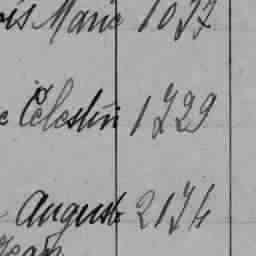 ois Marie 1077
e Célestin 1729
Auguste 2174
Jean